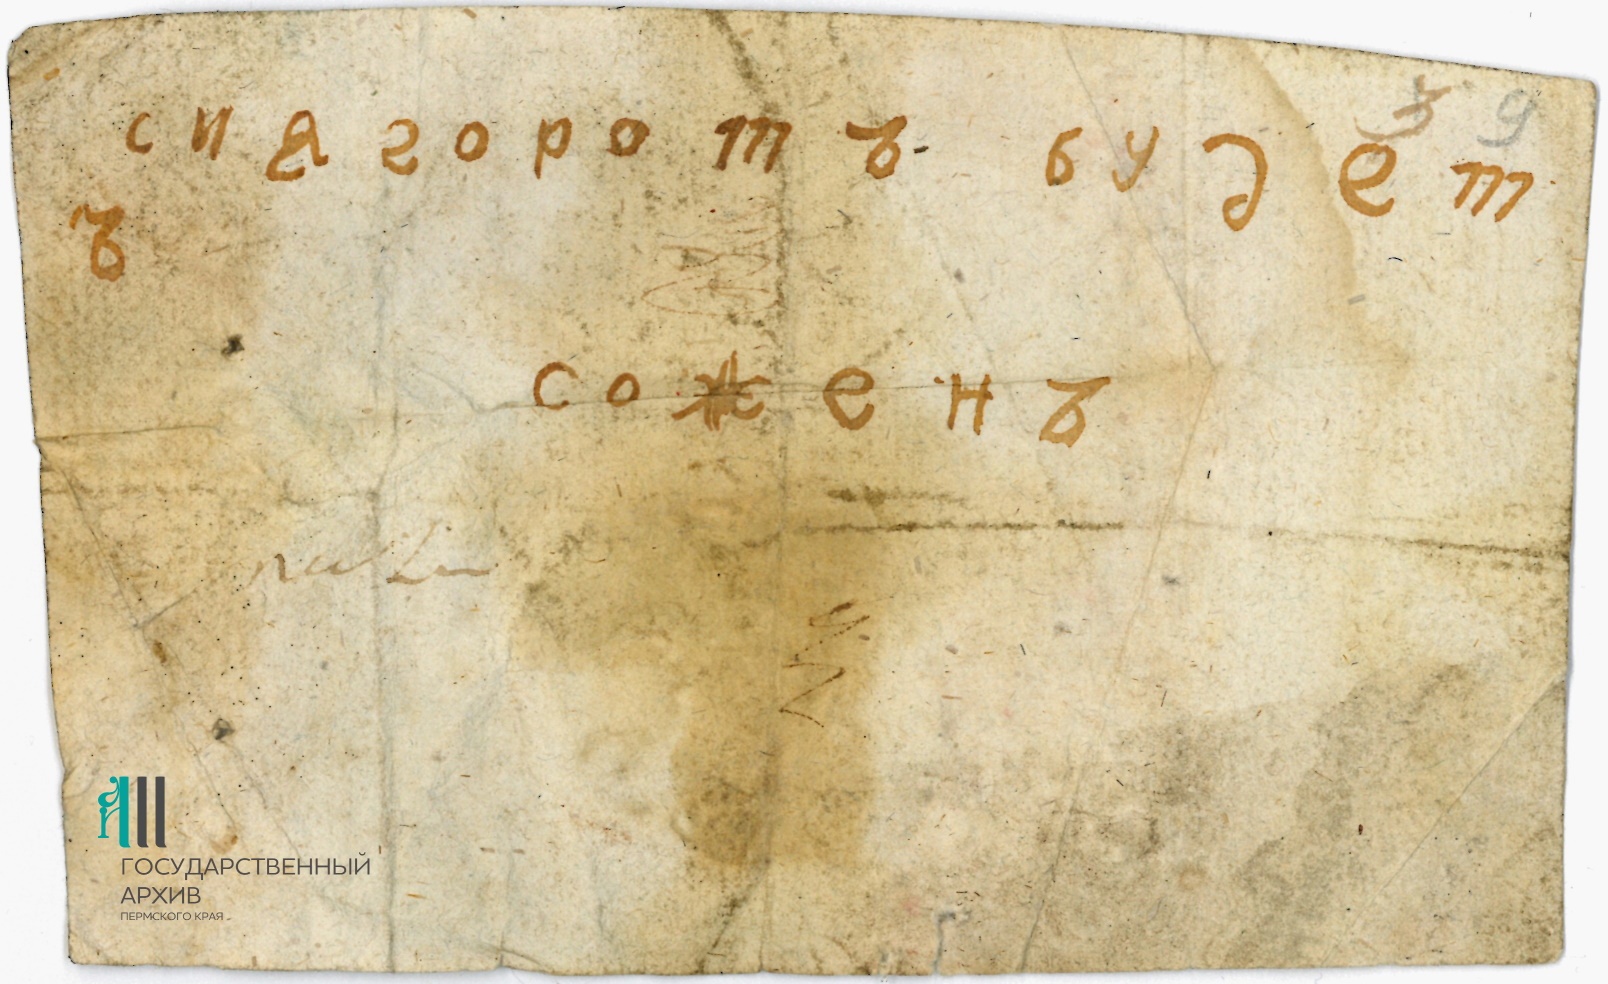 9
сия горотъ будет
ъ
соженъ
ГОСУДАРСТВЕННЫЙ
АРХИВ
ПЕРМСКОГО КРАЯ